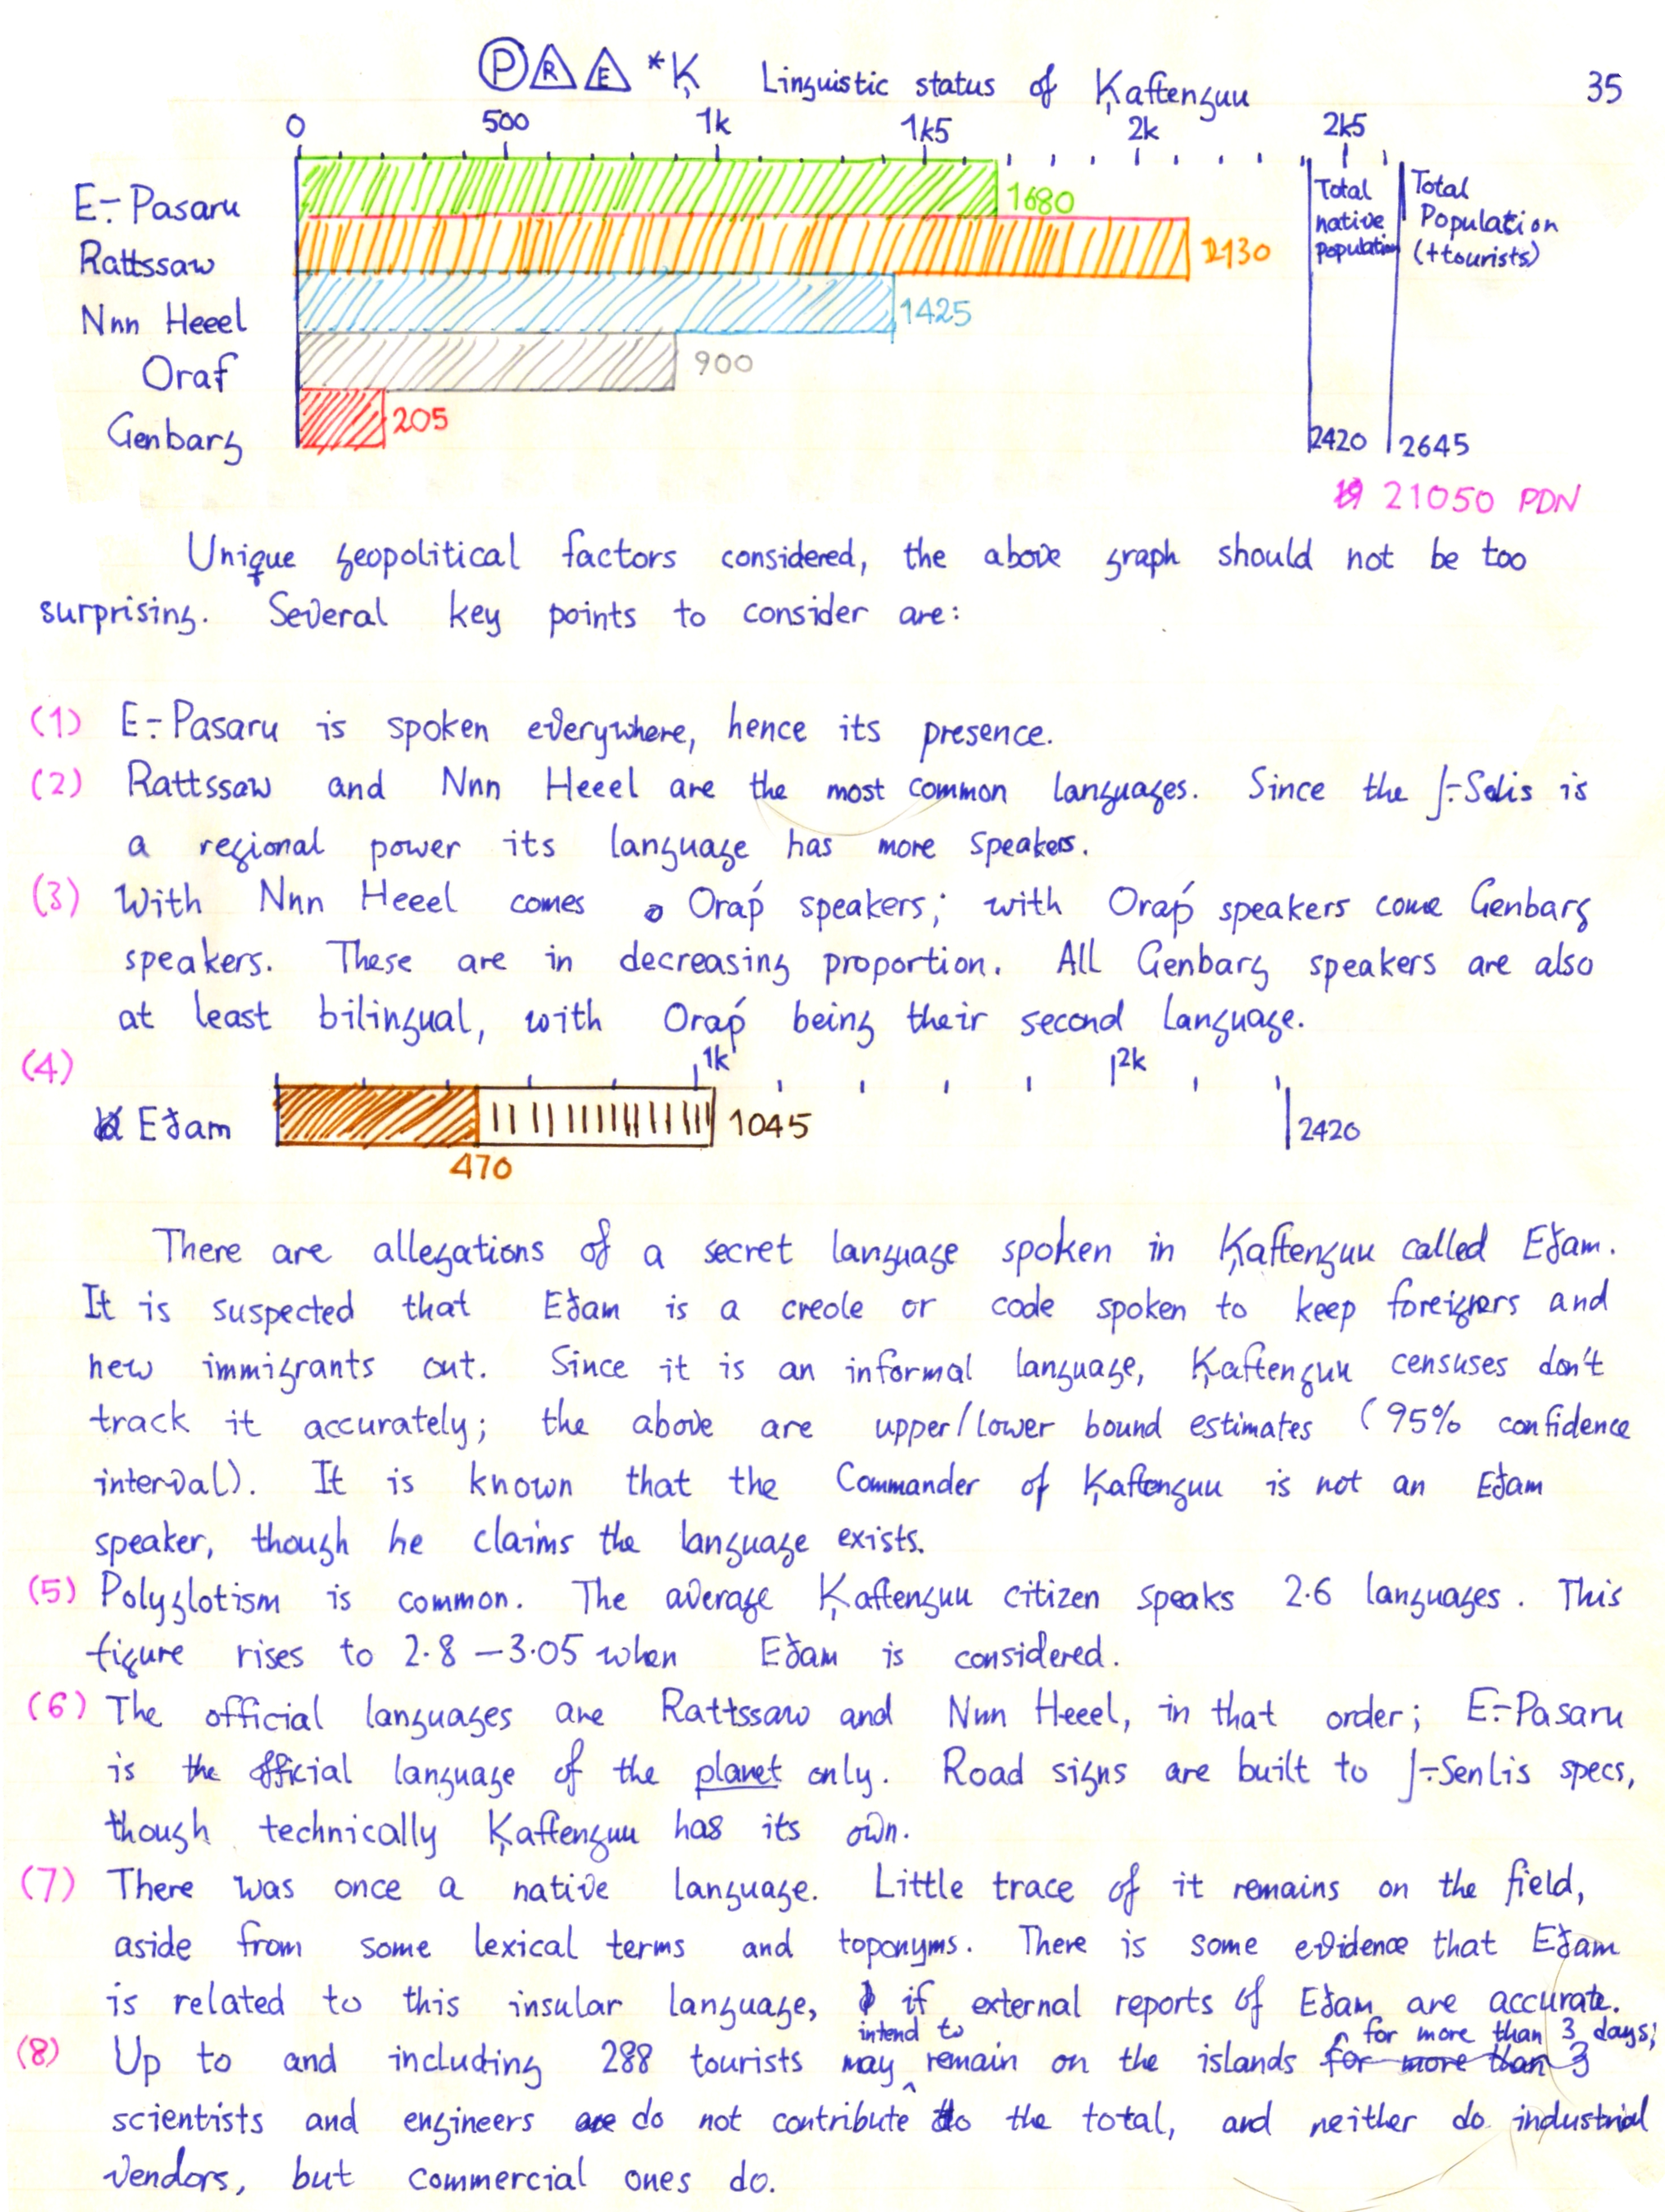 Ⓟ R E *Ķ Linguistic status of Ķaftenguu 35
0 500 1k 1k5 2k 2k5
E÷Pasaru 1680
Rattssaw 2130
Nnn Heeel 1425
Oraf 900
Genbarg 205
Total native population 2420
Total Population (+tourists) 2645
21050 PDN
Unique geopolitical factors considered, the above graph should not be too
surprising. Several key points to consider are:
(1) E÷Pasaru is spoken everywhere, hence its presence.
(2) Rattssaw and Nnn Heeel are the most common languages. Since the ʃ÷Selis is
a regional power its language has more speakers.
(3) With Nnn Heeel comes Oraṕ speakers; with Oraṕ speakers come Genbarg
speakers. These are in decreasing proportion. All Genbarg speakers are also
at least bilingual, with Oraṕ being their second language.
(4) 1k 2k
Eđam 470 1045 2420
There are allegations of a secret language spoken in Ķaftenguu called Eđam.
It is suspected that Eđam is a creole or code spoken to keep foreigners and
new immigrants out. Since it is an informal language, Ķaftenguu censuses don't
track it accurately; the above are upper/lower bound estimates (95% confidence
interval). It is known that the Commander of Ķaftenguu is not an Eđam
speaker, though he claims the language exists.
(5) Polyglotism is common. The average Ķaftenguu citizen speaks 2.6 languages. This
figure rises to 2.8 – 3.05 when Eđam is considered.
(6) The official languages are Rattssaw and Nnn Heeel, in that order; E÷Pasaru
is the official language of the planet only. Road signs are built to ʃ÷Senlis specs,
though technically Ķaftenguu has its own.
(7) There was once a native language. Little trace of it remains on the field,
aside from some lexical terms and toponyms. There is some evidence that Eđam
is related to this insular language, if external reports of Eđam are accurate.
(8) Up to and including 288 tourists may intend to remain on the islands for more than 3 days; for more than 3
scientists and engineers do not contribute to the total, and neither do industrial
vendors, but commercial ones do.